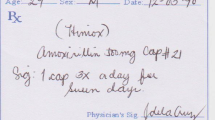 Age: 29 Sex: M Date: 12-03-90
Rx
(Himox)
Amoxicillin 500mg Cap # 21
Sig: 1 cap 3x a day for
seven days.
Physician's Sig.